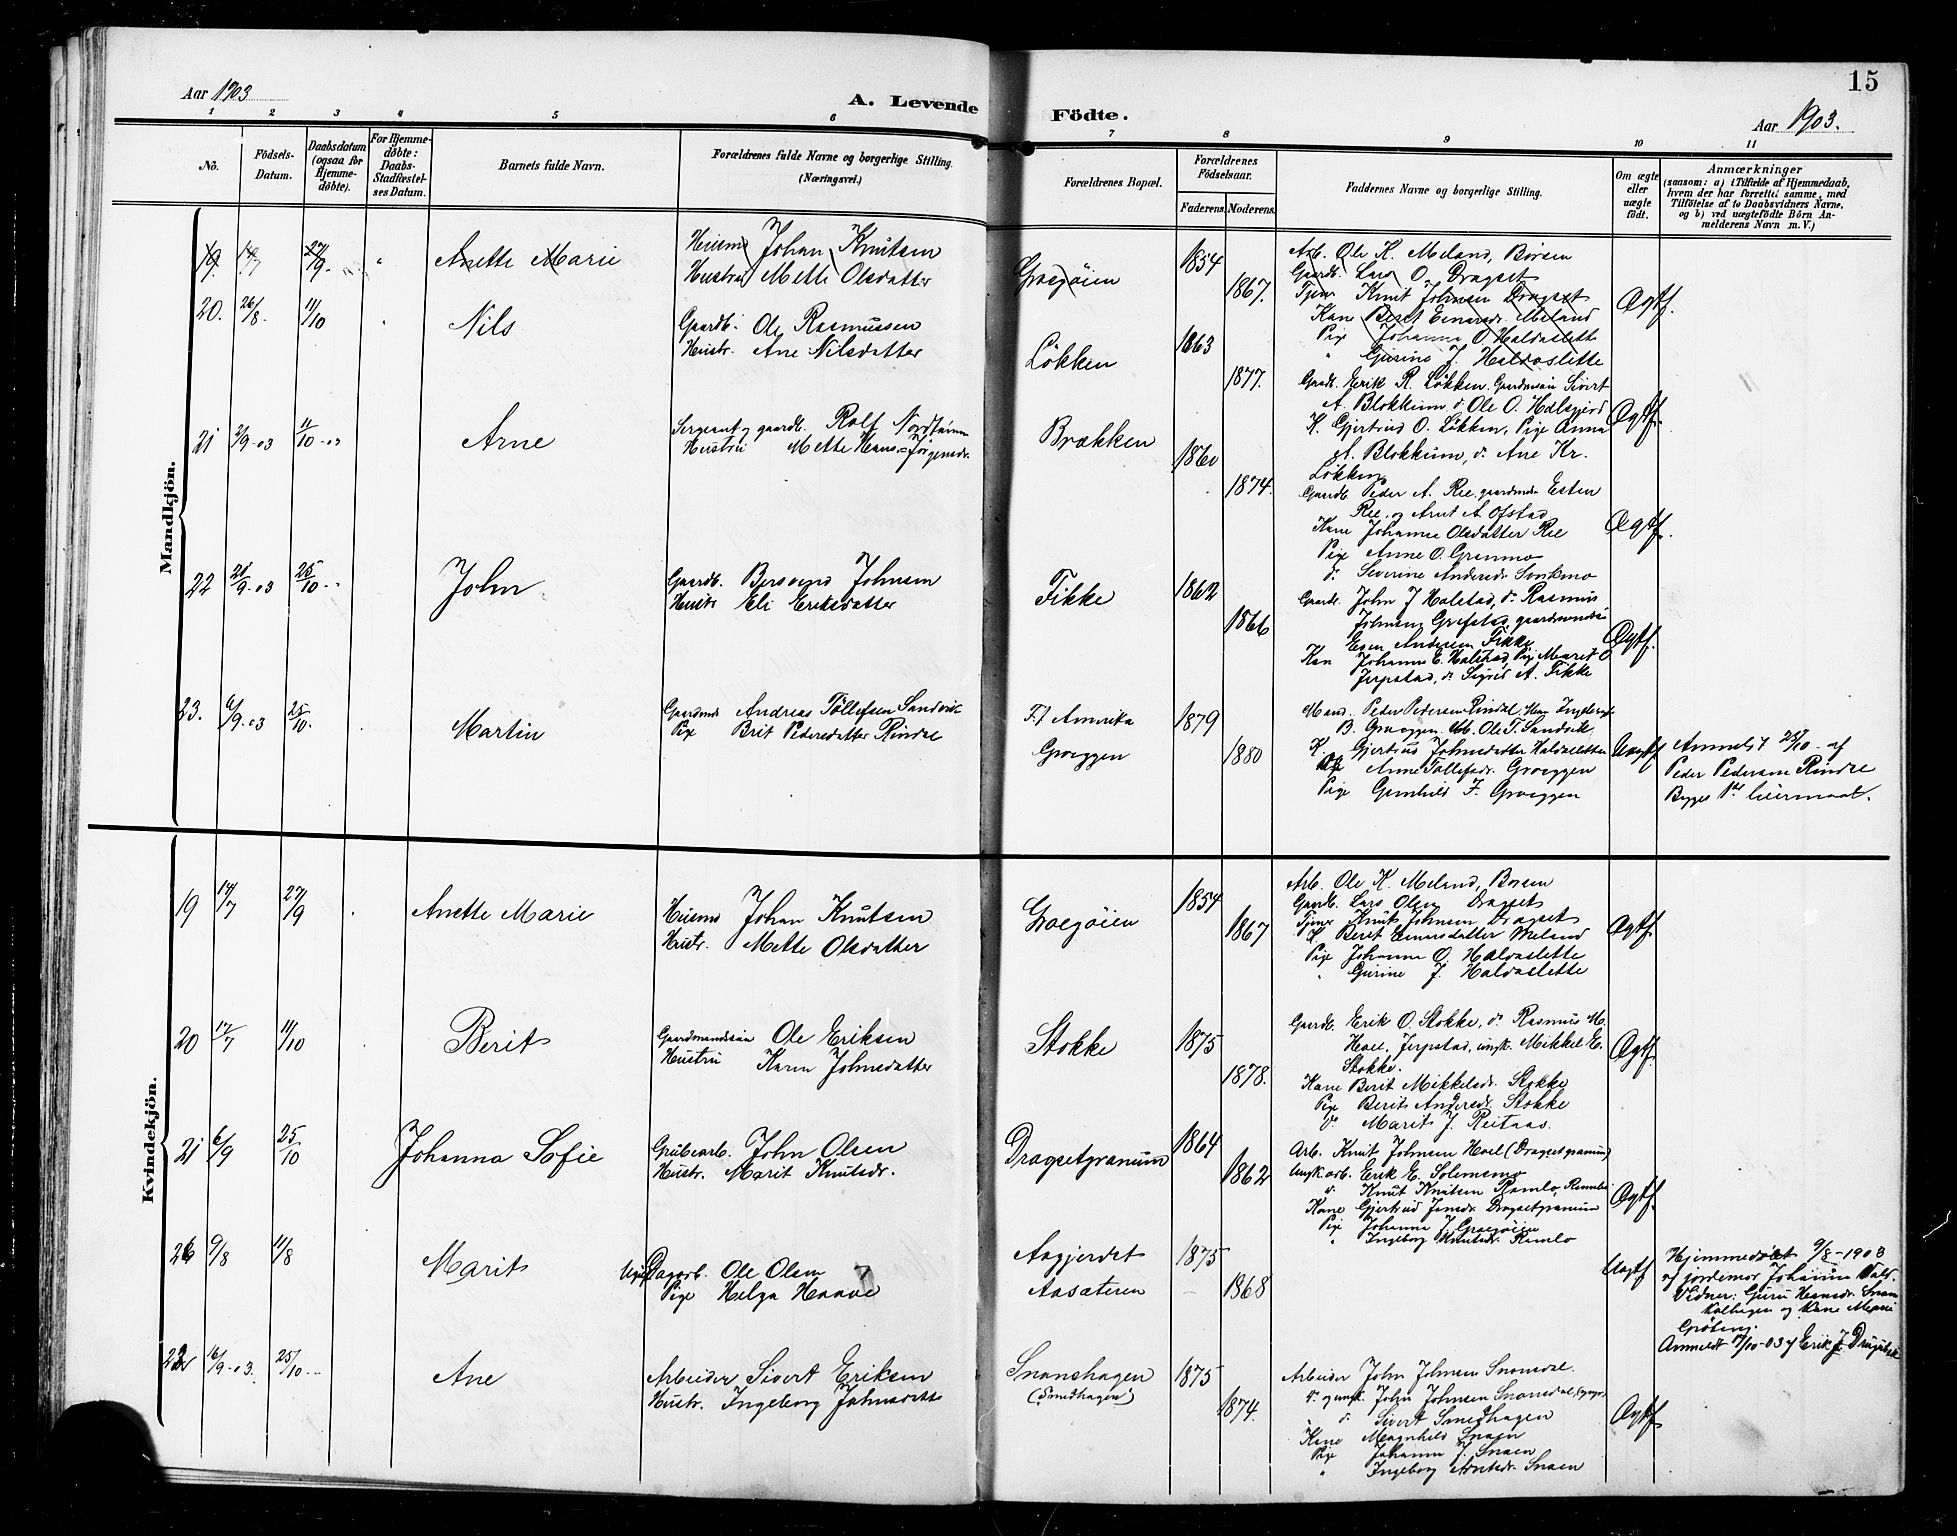 15
Aar 1903
A. Levende Födte.
Aar 1903.
1 2 3 4 5 6 7 8 9 10 11
No.
Födsels-Datum.
Daabsdatum (ogsaa for Hjemmedöbte).
For Hjemmedöbte: Daabs-Stadfæstelses Datum.
Barnets fulde Navn.
Forældrenes fulde Navne og borgerlige Stilling.
(Næringsvei.)
Forældrenes Bopæl.
Forældrenes Födselsaar.
Faderens. Moderens.
Faddernes Navne og borgerlige Stilling.
Om ægte eller uægte födt.
Anmærkninger
(saasom: a) i Tilfælde af Hjemmedaab, hvem der har forrettet samme, med Tilföielse af to Daabsvidners Navne, og b) ved uægtefödte Börn Anmelderens Navn m. V.)
Mandkjön.
19. 14/7 27/9. " Anette Marie
Husmd Johan Knutsen
Hustru Mette Olsdatter
Græsøien 1854 1867.
Arb. Ole K. Meland, Börsen
Gaardb. Lars O. Dragset
Tjener Knut Johnsen Dragset
Kone Beret Einarsdr. Meland
Pige Johanna O. Haldaslette
" Gurine J. Haldaslette
Ægtf.
20. 26/8 11/10 Nils
Gaardb. Ole Rasmussen
Hustr. Ane Nilsdatter
Løkken 1863 1877.
Gaardb. Erik R. Løkken. Gaardmsøn Sivert
A. Blokkum, do Ole O. Halsgjerd
K. Gjertrud O. Løkken, Pige Anna
A. Blokkum, do Ane Kr.
Løkken
Ægtf.
21 2/9-03 11/10-03 Arne
Sergeant og gaardb. Rolf Nordtømme
Hustru Mette Hans-Jørgensdr.
Brækken 1860 1874.
Gaardb. Peder A. Ree, gaardmds Esten
Ree, og Arnt A. Ofstad
Kone Johanna Olsdatter Ree
Pige Anne O. Grønmo
do Severine Andersdr. Svorkmo
Ægtf.
22 21/9-03 25/10-" John
Gaardb. Bersvend Johnsen
Hustr Eli Eriksdatter
Fikke 1862 1866
Gaardb. John J Halstad, do Rasmus
Johnsen Grefstad, gaardmandssøn
Esten Andersen Fikke
Kone Johanne E. Halstad, Pige Marit O
Jerpstad, do Sigrid A. Fikke
Ægtf.
23. 6/9-03 25/10. Martin
Gaardmds Andreas Tøllefsen Sandvik
Pige Brit Pedersdatter Rindal
F. i Amerika
Græggen
1879 1880
Peder Pedersen Rindal,
B. Græggen, Ole T. Sandvik
K. Gjertrud Johnsdatter Haldaslette
Pige Anne Tøllefsdr. Græggen
Pige Gunhild F. Græggen
Uægtf
Anmeldt 25/10 af
Peder Pedersen Rindal
Begges 1ste Leiermaal.
Kvindekjön.
19 14/7 27/9 Anette Marie
Husmd Johan Knutsen
Hustr. Mette Olsdatter
Græsøien 1854 1867
Arb. Ole K. Meland, Børsen
Gaardb. Lars Olsen Dragset
Tjener Knut Johnsen Dragset
K Beret Einarsdatter Meland
Pige Johanna O. Haldaslette
" Gurine J. Haldaslette
Ægtf.
20 17/7 11/10 Berit
Gaardmandssøn Ole Eriksen
Hustru Karen Johnsdatter
Stokke 1875 1878.
Gaardb. Erik O. Stokke, do Rasmus M.
Hoel, Jerpstad, ungk. Mikkel E.
Stokke.
Kone Berit Mikkelsdr. Stokke
Pige Berit Andersdr. Stokke
do Marit J. Reitaas.
Ægtf.
21 6/9 25/10 Johanna Sofie
Grubearb. John Olsen
Hustr. Marit Knutsdr.
Dragsetgranum 1864 1862
Arb. Knut Johnsen Hoel (Dragsetgranum)
Ungk. arb. Erik E. Solemsmo
do Knut Knutsen Ramlo, Rennebu
Kone Gjertrud Jonsdr. Dragsetgranum
Pige Johanna J. Græsøien
" Ingeborg Knutsdr. Ramlo
Ægtf.
26 9/8 11/8 Marit
Ugift Dagarb. Ole Olsen
Pige Helga Haave
Aagjerdet
Aasæteren
1875 1868
Uægtf
Hjemmedøbt 9/8-1903
af jordemor Johanna Vold.
Vidner: Guru Hansdr. Snoen
Kalhagen og Kone Marie
Grøting.
Anmeldt 17/10-03 af Erik J. Drugudal
22 16/9-03. 25/10-" Ane
Arbeider Sivert Eriksen
Hustr. Ingeborg Johnsdatter
Snoenshagen
(Smedhagen)
1875 1874.
Arbeider John Johnsen Snoensdal.
do og ungk. John Johnsen Snoensdal,
do Sivert Smedhagen
Kone Magnhild Snoen
Pige Johanna J. Snoen
" Ingeborg Arntsdr. Snoen
Ægtf